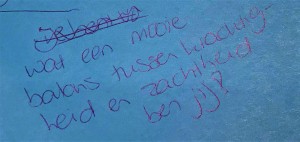 wat een mooie
balans tussen krachtig-
heid en zachtheid
ben jij?